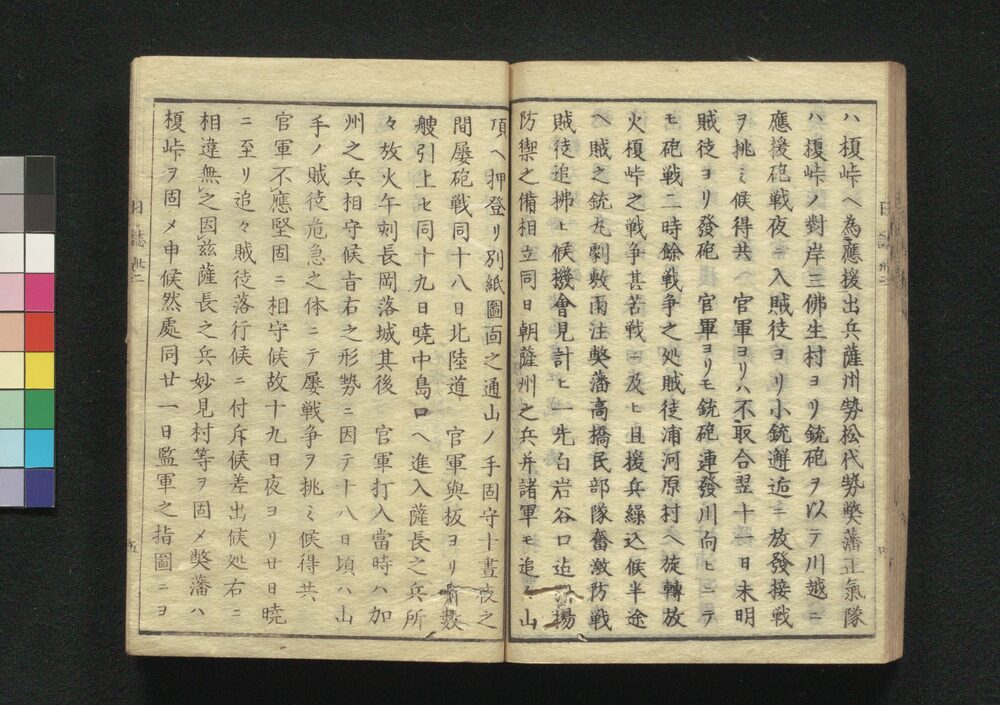 ハ榎峠ヘ為應援出兵薩州勢松代勢弊藩正氣隊
ハ榎峠ノ對岸三佛生村ヨリ銃砲ヲ以テ川越ニ
應援砲戦夜ニ入賊徒ヨリ小銃邂逅ニ放發接戦
ヲ挑ミ候得共 官軍ヨリハ不取合翌十一日未明
賊徒ヨリ發砲 官軍ヨリモ銃砲連發川向ヒニテ
モ砲戦二時餘戦争之処賊徒浦河原村ヘ旋轉放
火榎峠之戦争甚苦戦ニ及ヒ且援兵繰込候半途
ヘ賊之銃丸劇敷雨注弊藩高橋民部隊奮激防戦
賊徒追拂ヒ候機會見計ヒ一先白岩谷口迠揚
防禦之備相立同日朝薩州之兵并諸軍モ追々山
頂ヘ押登リ別紙圖面之通山ノ手固守十晝夜之
間屡砲戦同十八日北陸道 官軍與板ヨリ舟数
艘引上セ同十九日曉中島口ヘ進入薩長之兵所
々放火午刺長岡落城其後 官軍打入當時ハ加
州之兵相守候旨右之形勢ニ因テ十八日頃ハ山
手ノ賊徒危急之体ニテ屡戦争ヲ挑ミ候得共
官軍不應堅固ニ相守候故十九日夜ヨリ廿日曉
ニ至リ追々賊徒落行候ニ付斥候差出候処右ニ
相違無之因茲薩長之兵妙見村等ヲ固メ弊藩ハ
榎峠ヲ固メ申候然處同廿一日監軍之指圖ニヨ
日誌 卅二
五